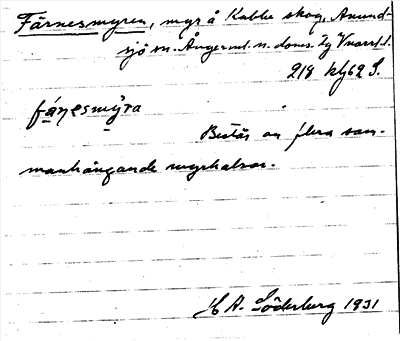 Färnesmyren, myr å Kubbe skog, Anund-
sjö sn. Ångerml. n. doms.
218 Kfj62 S.
fárnesmỳra
Består av flera sam-
manhängande myrhalsar.
H A. Söderberg 1931